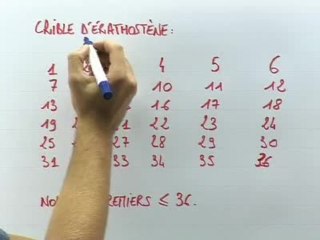 CRIBLE D'ÉRATHOSTÈNE:
1 4 5 6
7 10 11 12
13 16 17 18
19 22 23 24
25 27 28 29 30
31 33 34 35 36
≤ 36.